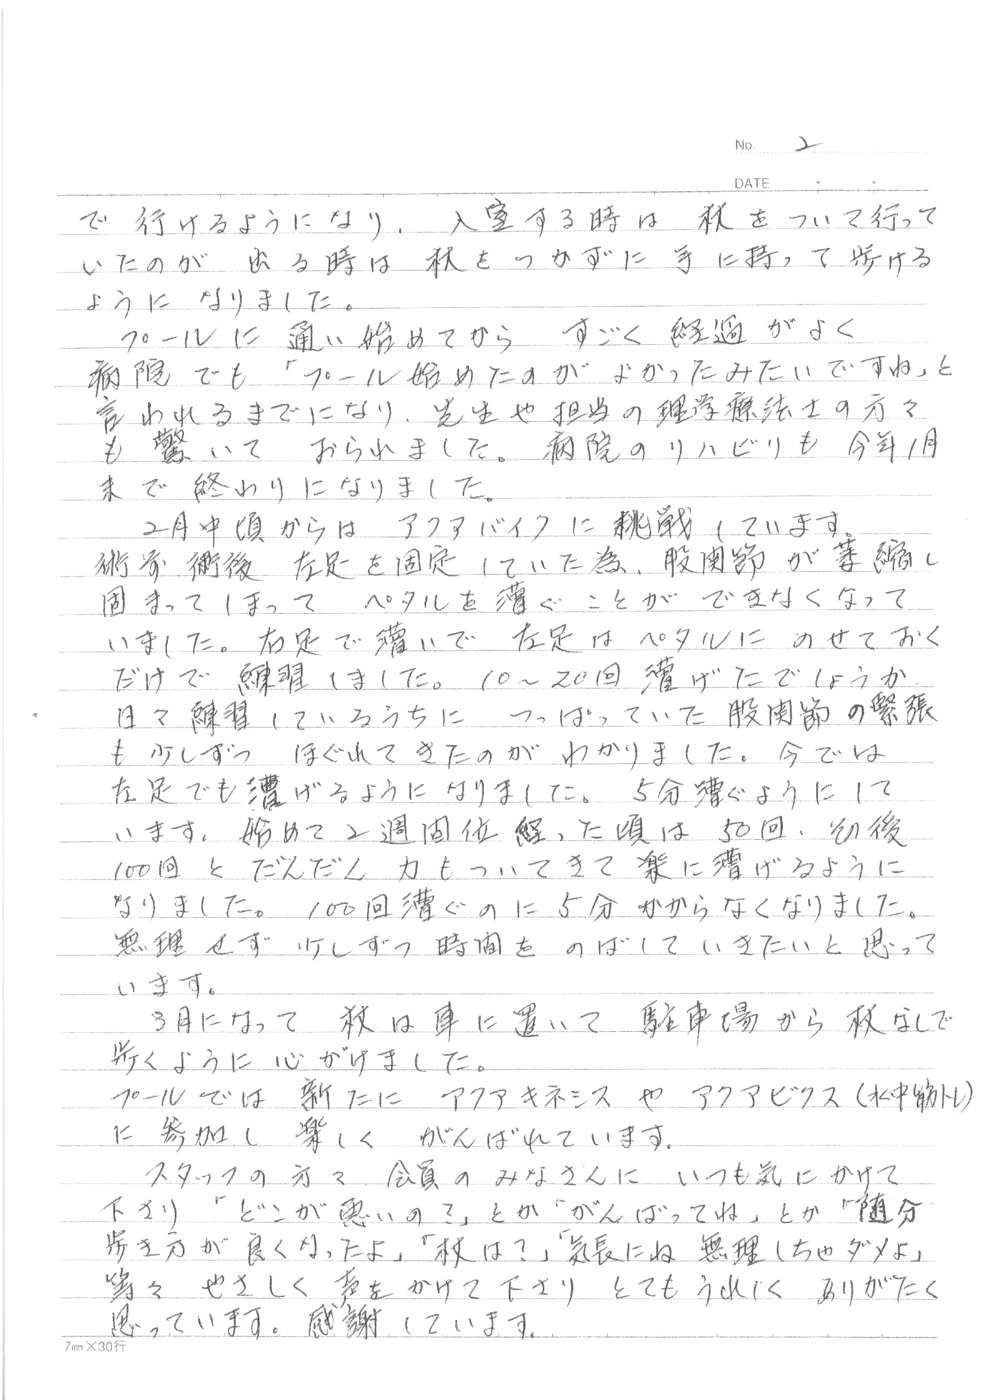 No. 2
DATE ・ ・
で行けるようになり、入室する時は杖をついて行って
いたのが出る時は杖をつかずに手に持って歩ける
ようになりました。
プールに通い始めてから すごく経過がよく
病院でも「プール始めたのがよかったみたいですね」と
言われるまでになり、先生や担当の理学療法士の方々
も驚いておられました。病院のリハビリも今年1月
まで終わりになりました。
2月中頃からは アクアバイクに挑戦しています。
術前術後 左足を固定していた為、股関節が萎縮し
固まってしまって ペタルを漕ぐことができなくなって
いました。右足で漕いで 左足はペタルにのせておく
だけで練習しました。10〜20回漕げたでしょうか
日々練習しているうちに つっぱっていた股関節の緊張
も少しずつ ほぐれてきたのがわかりました。今では
左足でも漕げるようになりました。5分漕ぐようにして
います。始めて2週間位経った頃は50回、その後
100回とだんだん力もついてきて楽に漕げるように
なりました。100回漕ぐのに5分かからなくなりました。
無理せず少しずつ時間をのばしていきたいと思って
います。
3月になって 杖は車に置いて 駐車場から杖なしで
歩くように心がけました。
プールでは新たに アクアキネシスや アクアビクス(水中筋トレ)
に参加し楽しく がんばれています。
スタッフの方々 会員のみなさんに いつも気にかけて
下さり「どこが悪いの?」とか「がんばってね」とか「随分
歩き方が良くなったよ」「杖は?」「気長にね 無理しちゃダメよ」
等々 やさしく声をかけて下さり とてもうれしく ありがたく
思っています。感謝しています。
7mm×30行